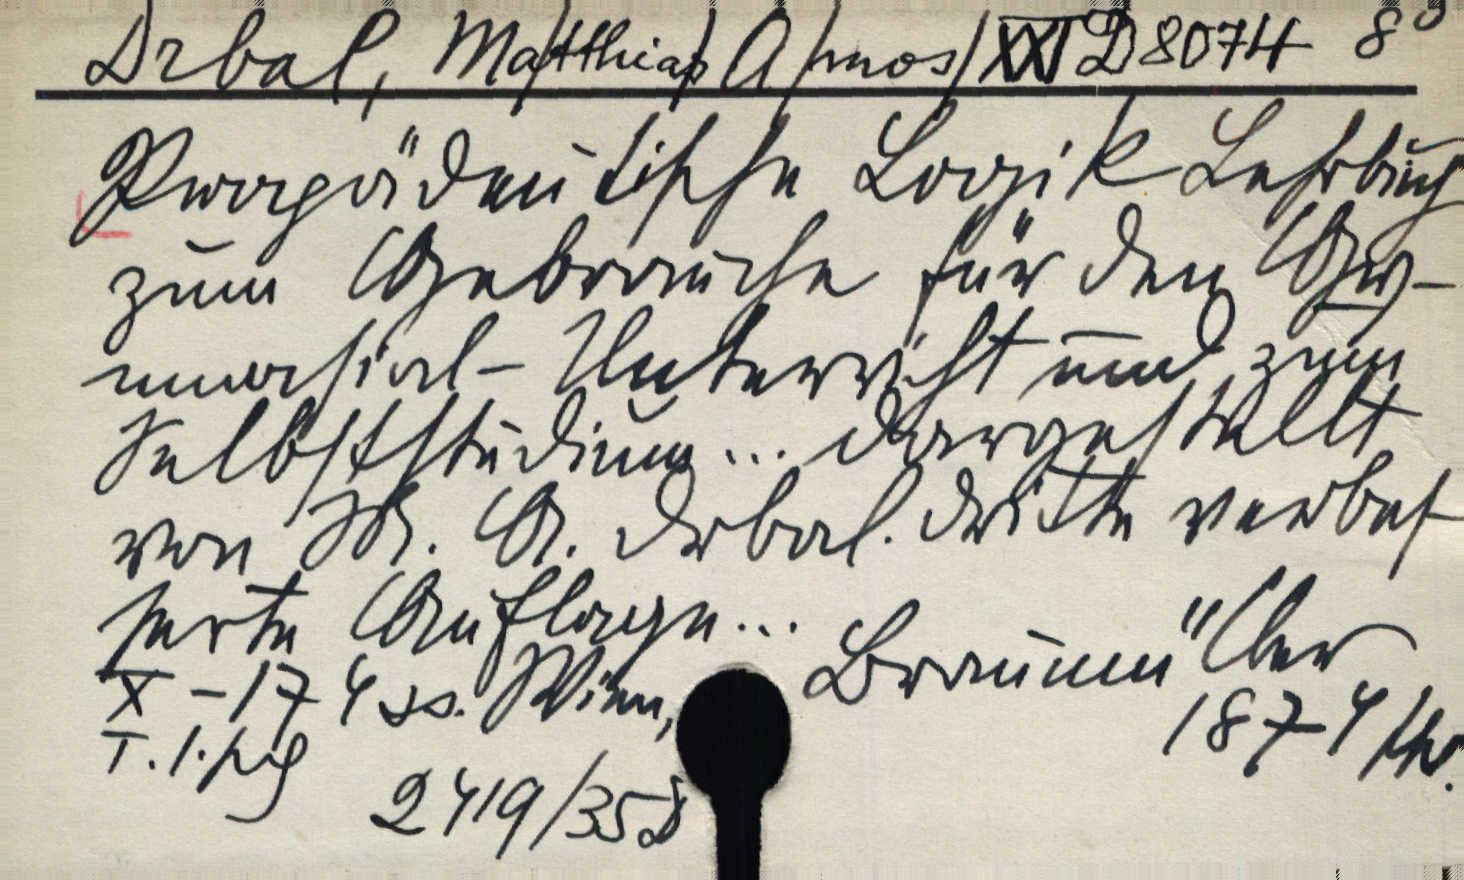 Drbal, Matthias Amos XXI D 8074 8°
Propädeutische Logik Lehrbuch
zum Gebrauche für den Gym-
nasial-Unterricht und zum
Selbststudium... dargestellt
von M. A. Drbal. Dritte verbes-
serte Auflage...
X - 174 ss. Wien, Braumüller
T. 1. 1874
2419/358